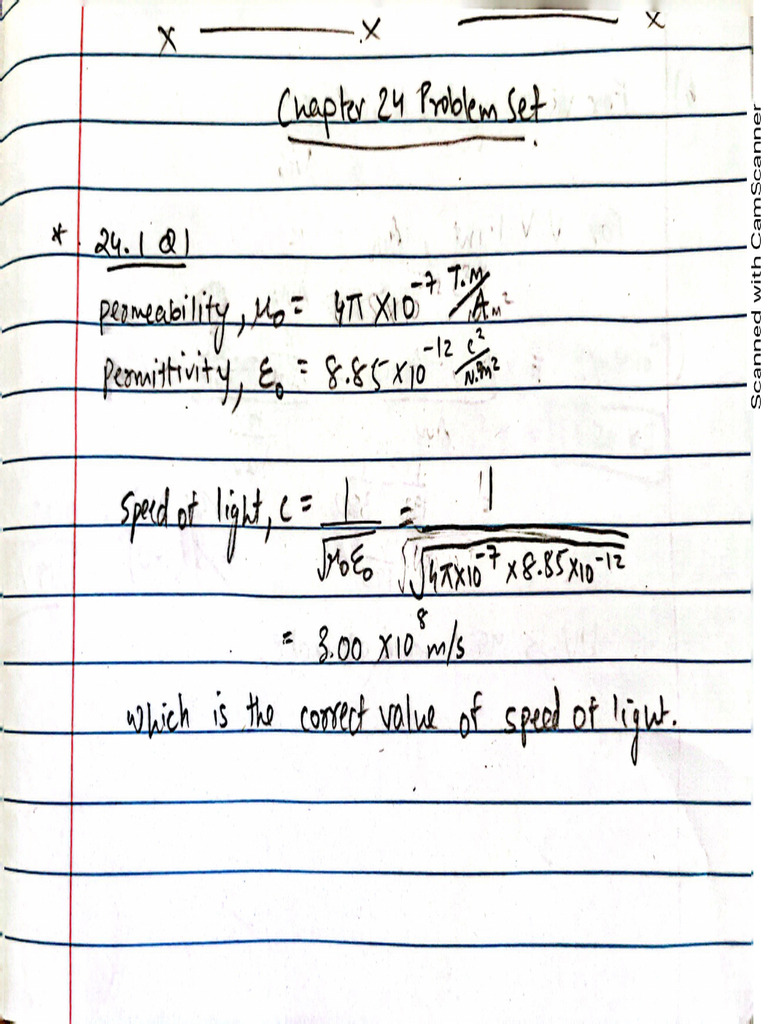 x ——— .x ——— x
Chapter 24 Problem Set.
* 24.1 Q1
permeability, μ₀ = 4π×10⁻⁷ T.m/A
permittivity, ε₀ = 8.85×10⁻¹² C²/N.m²
Speed of light, c = 1/√μ₀ε₀ = 1/√4π×10⁻⁷ × 8.85×10⁻¹²
= 3.00 ×10⁸ m/s
which is the correct value of speed of light.
Scanned with CamScanner